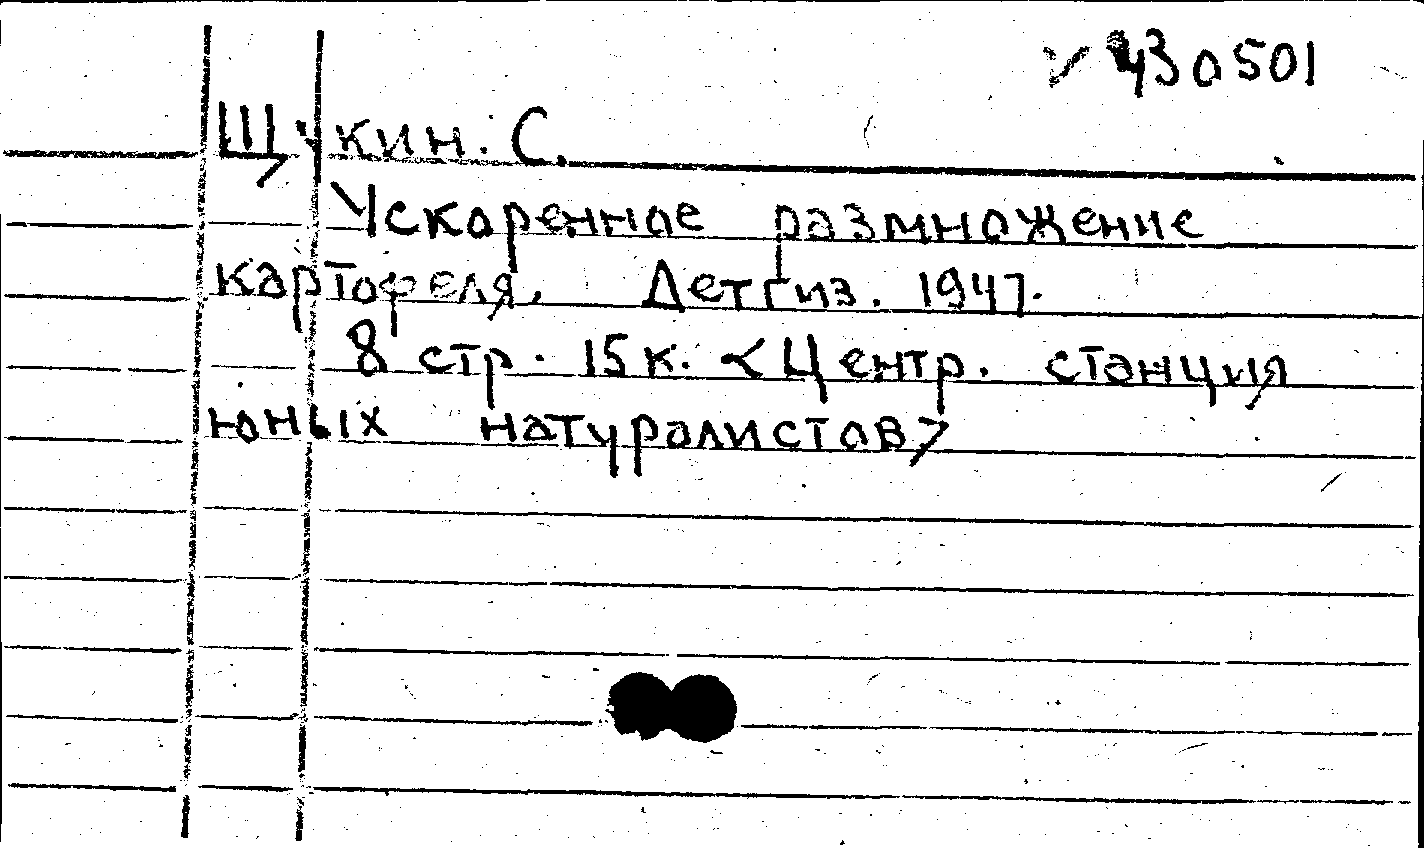 430501
Щукин. С.
Ускоренное размножение
картофеля. Детгиз. 1947.
8 стр. 15 к. <Центр. станция
юных натуралистов>